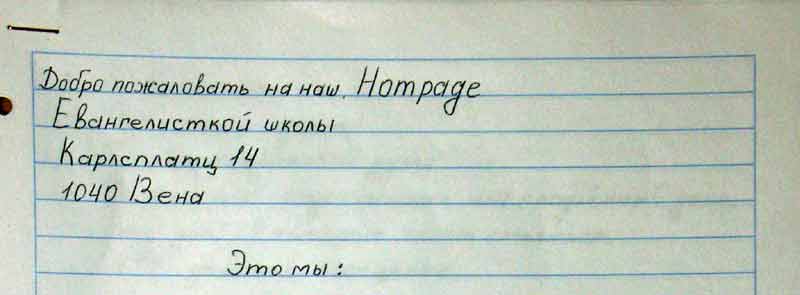 Добро пожаловать на наш. Hompage
Евангелисткой школы
Карлсплатц 14
1040 Вена
Это мы: